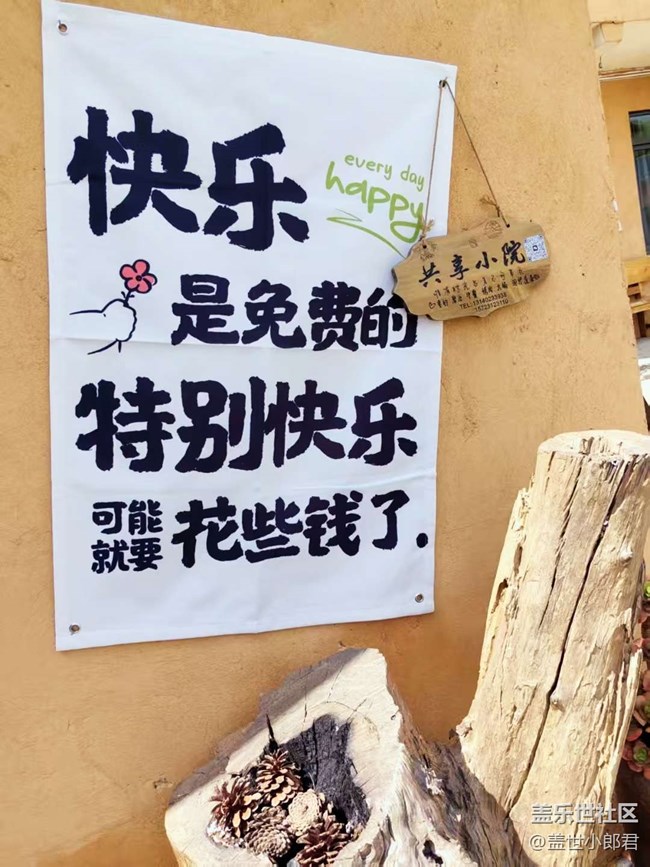 快乐
every day
happy
是免费的
特别快乐
可能
就要
花些钱了.
共享小院
盖乐世社区
@盖世小郎君